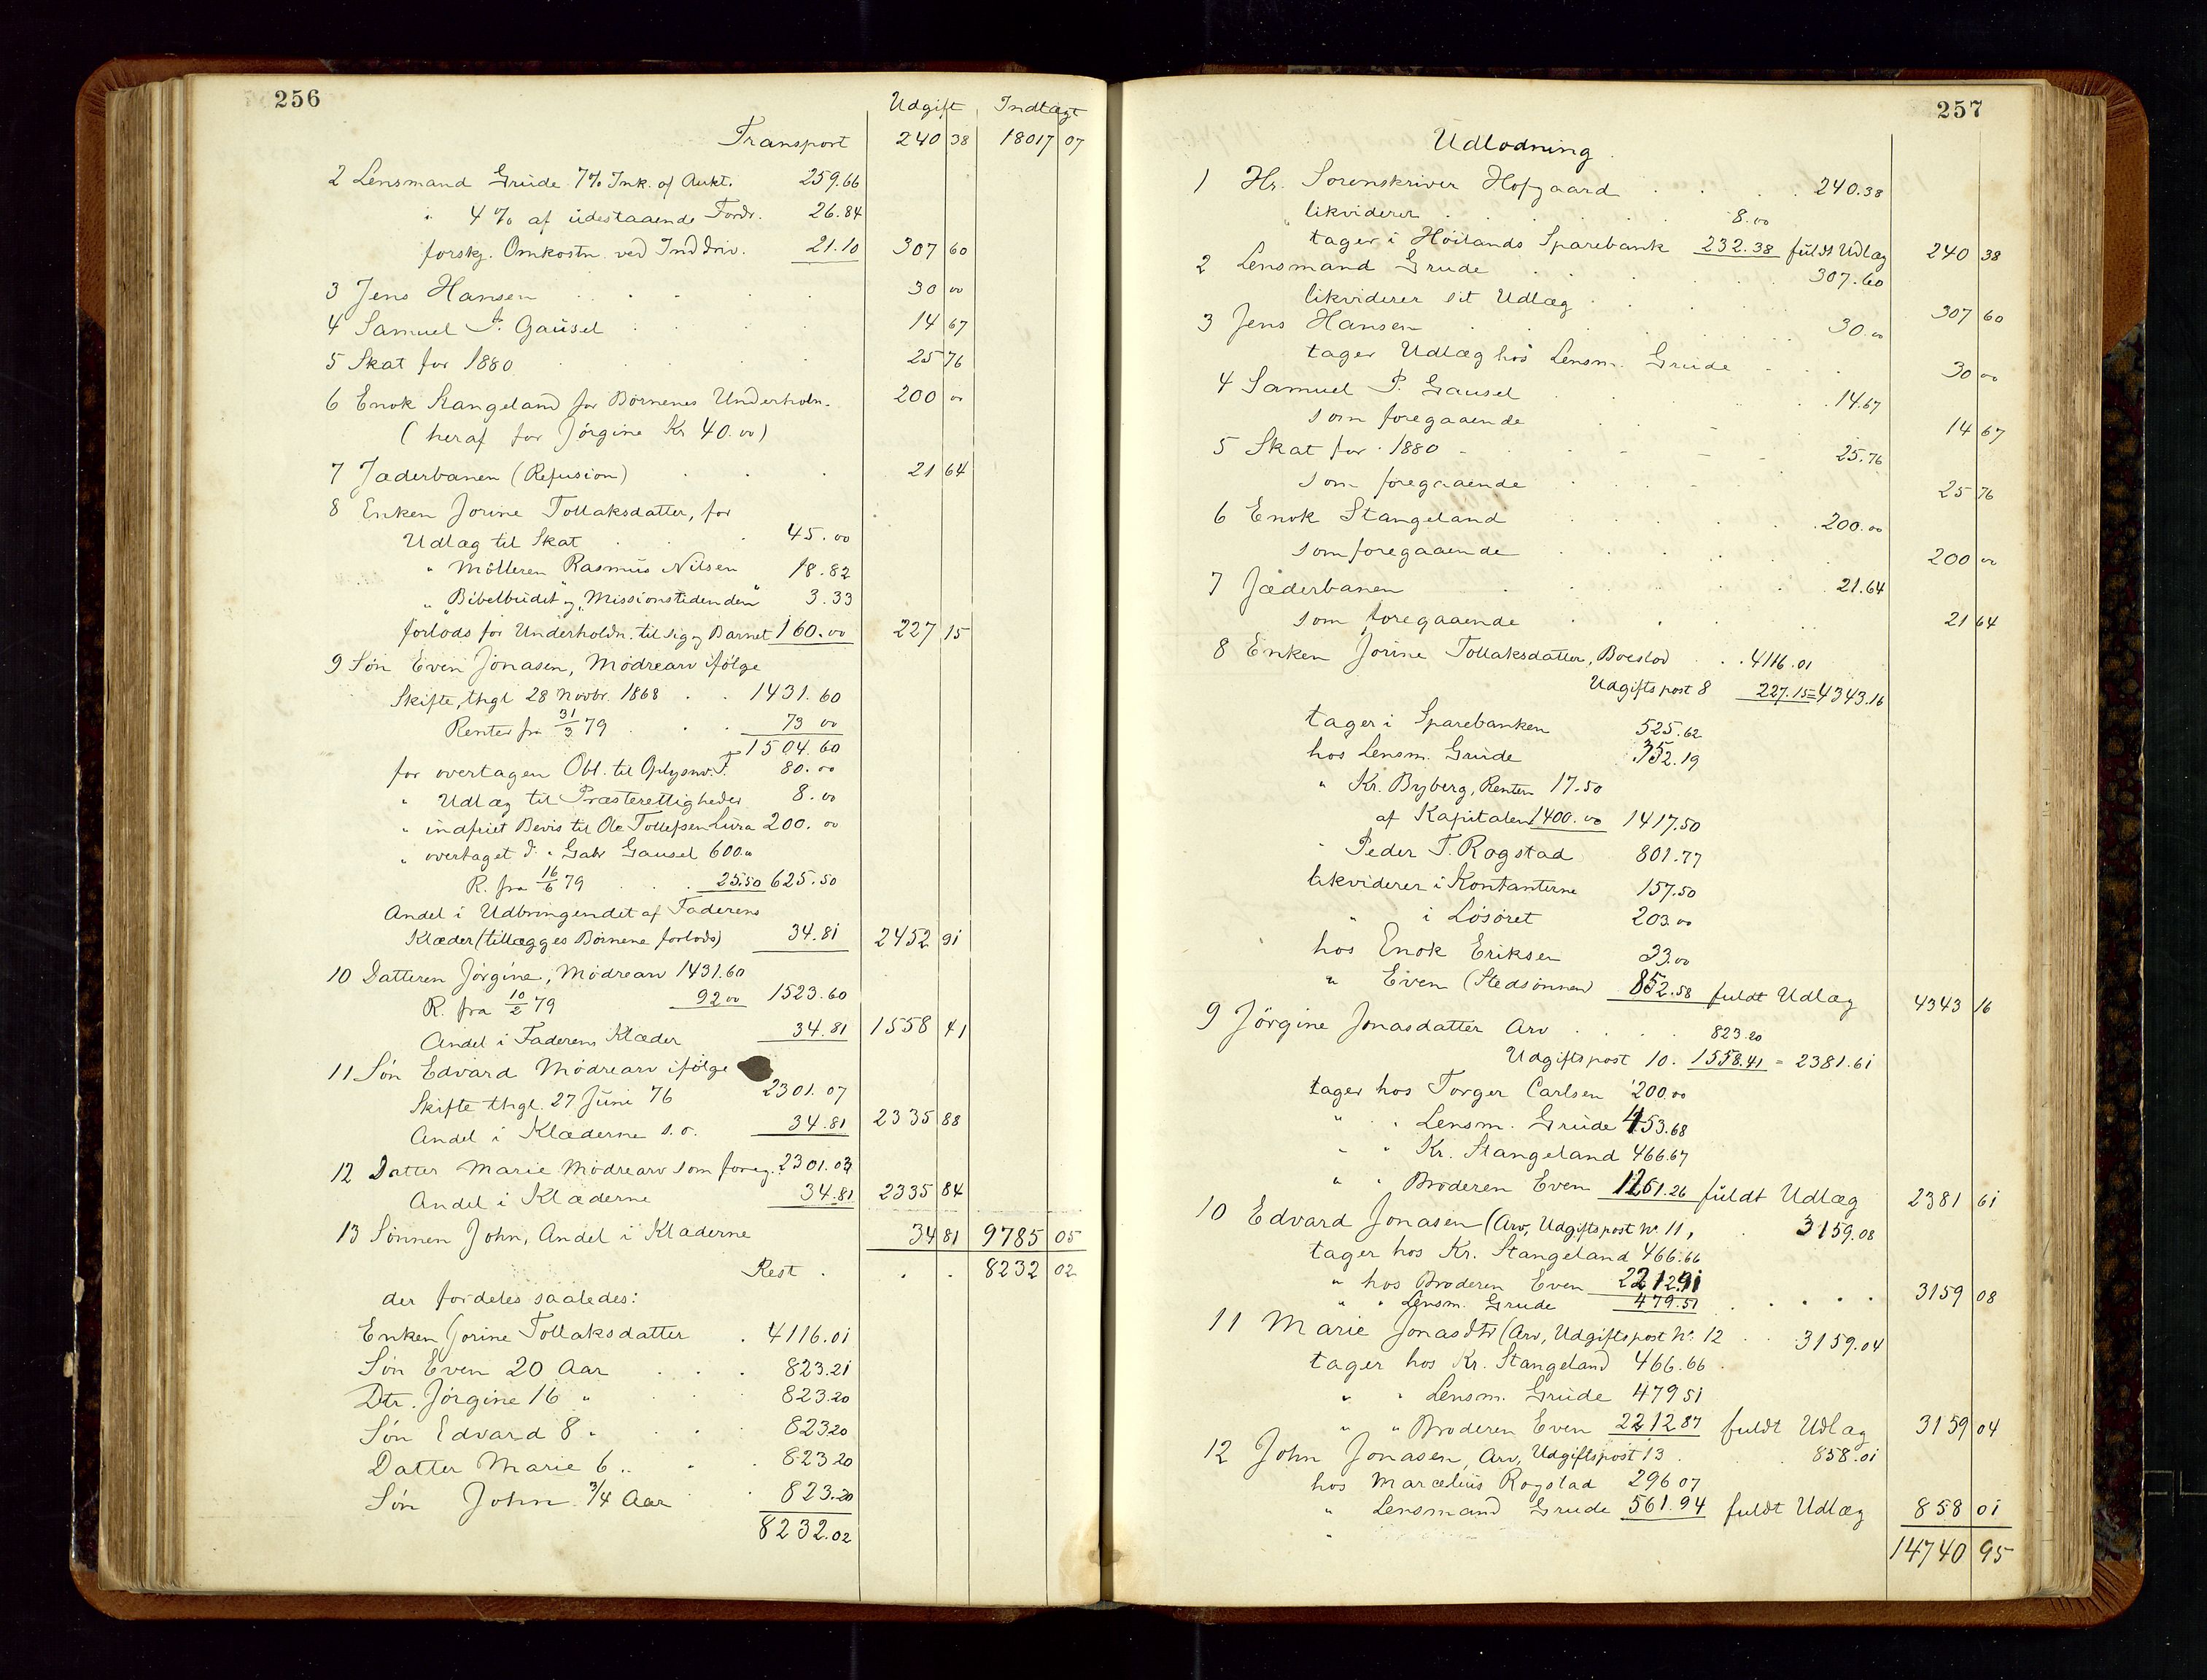 256
Udgift Indtægt
Transport 240 38 18017 07
2 Lensmand Grude 7% Ink. af Aukt. 259.66
" 4% af udestaaende Fordr. 26.84
forskj. Omkostn. ved Inddriv. 21.10 307 60
3 Jens Hansen 30 00
4 Samuel P. Gausel 14 67
5 Skat for 1880 25 76
6 Enok Stangeland for Børnenes Underholn. 200 00
(heraf for Jørgine Kr 40.00)
7 Jæderbanen (Refusion) 21 64
8 Enken Jorine Tollaksdatter, for
Udlæg til Skat 45.00
" Mølleren Rasmus Nilsen 18.82
" "Bibelbudet" og "Missionstidenden" 3.33
forlods for Underholdn. til sig og Barnet 160.00 227 15
9 Søn Even Jonasen, Mødrearv ifølge
Skifte, thgl 28 Novbr. 1868 1431.60
Renter fra 31/3 79 73 00
1504.60
for overtagen Obl. til Oplysnv. F. 80.00
" Udlæg til Præsterettigheder 8.00
" indfriet Bevis til Ole Tollefsen Lura 200.00
" overtaget d. " Gabr Gausel 600.00
R. fra 16/6 79 25.50 625.50
Andel i Udbringendet af Faderens
Klæder (tillægges Børnene forlods) 34.81 2452 91
10 Datteren Jørgine, Mødrearv 1431.60
R. fra 10/2 79 92 00 1523.60
Andel i Faderens Klæder 34.81 1558 41
11 Søn Edvard Mødrearv ifølge
Skifte thgl. 27 Juni 76 2301.07
Andel i Klæderne s.o. 34.81 2335 88
12 Datter Marie Mødrearv som foreg. 2301.03
Andel i Klæderne 34.81 2335 84
13 Sønnen John, Andel i Klæderne 34 81 9785 05
Rest 8232 02
der fordeles saaledes:
Enken Jorine Tollaksdatter 4116.01
Søn Even 20 Aar 823.21
Dtr. Jørgine 16 " 823.20
Søn Edvard 8 " 823.20
Datter Marie 6 " 823.20
Søn John 3/4 Aar 823.20
8232.02
257
Udlodning
1 Hr. Sorenskriver Hofgaard 240.38
likviderer 8.00
tager i Høilands Sparebank 232.38 fuldt Udlæg 240 38
2 Lensmand Grude 307.60
likviderer sit Udlæg 307 60
3 Jens Hansen 30.00
tager Udlæg hos Lensm. Grude 30 00
4 Samuel P. Gausel 14.67
som foregaaende 14 67
5 Skat for 1880 25.76
som foregaaende 25 76
6 Enok Stangeland 200.00
som foregaaende 200 00
7 Jæderbanen 21.64
som foregaaende 21 64
8 Enken Jorine Tollaksdatter, Boeslod 4116.01
Udgiftspost 8 227.15 = 4343.16
tager i Sparebanken 525.62
hos Lensm. Grude 352.19
" Kr. Byberg, Renter 17.50
af Kapitalen 1400.00 1417.50
" Peder T. Rogstad 801.77
likviderer i Kontanterne 157.50
" i Løsøret 203.00
hos Enok Eriksen 33.00
" Even (Stedsønnen) 852.58 fuldt Udlæg 4343 16
9 Jörgine Jonasdatter Arv 823.20
Udgiftspost 10. 1558.41 = 2381.61
tager hos Torger Carlsen 200.00
" " Lensm. Grude 453.68
" " Kr. Stangeland 466.67
" " Broderen Even 1261.26 fuldt Udlæg 2381 61
10 Edvard Jonasen (Arv, Udgiftspost No. 11, 3159.08
tager hos Kr. Stangeland 466.66
" hos Broderen Even 2212.91
" " Lensm. Grude 479.51 3159 08
11 Marie Jonasdtr (Arv, Udgiftspost No. 12 3159.04
tager hos Kr. Stangeland 466.66
" " Lensm. Grude 479 51
" " Broderen Even 2212 87 fuldt Udlæg 3159 04
12 John Jonasen, Arv, Udgiftspost 13 858.01
hos Marcelius Rogstad 296 07
" Lensmand Grude 561.94 fuldt Udlæg 858 01
14740 95